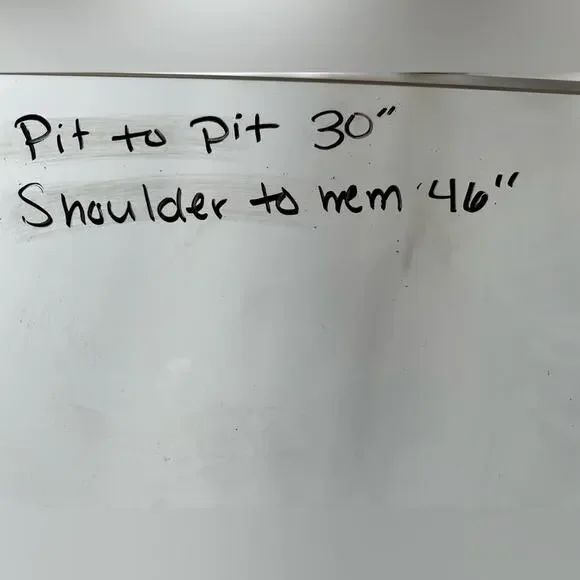 Pit to Pit 30"
Shoulder to hem 46"